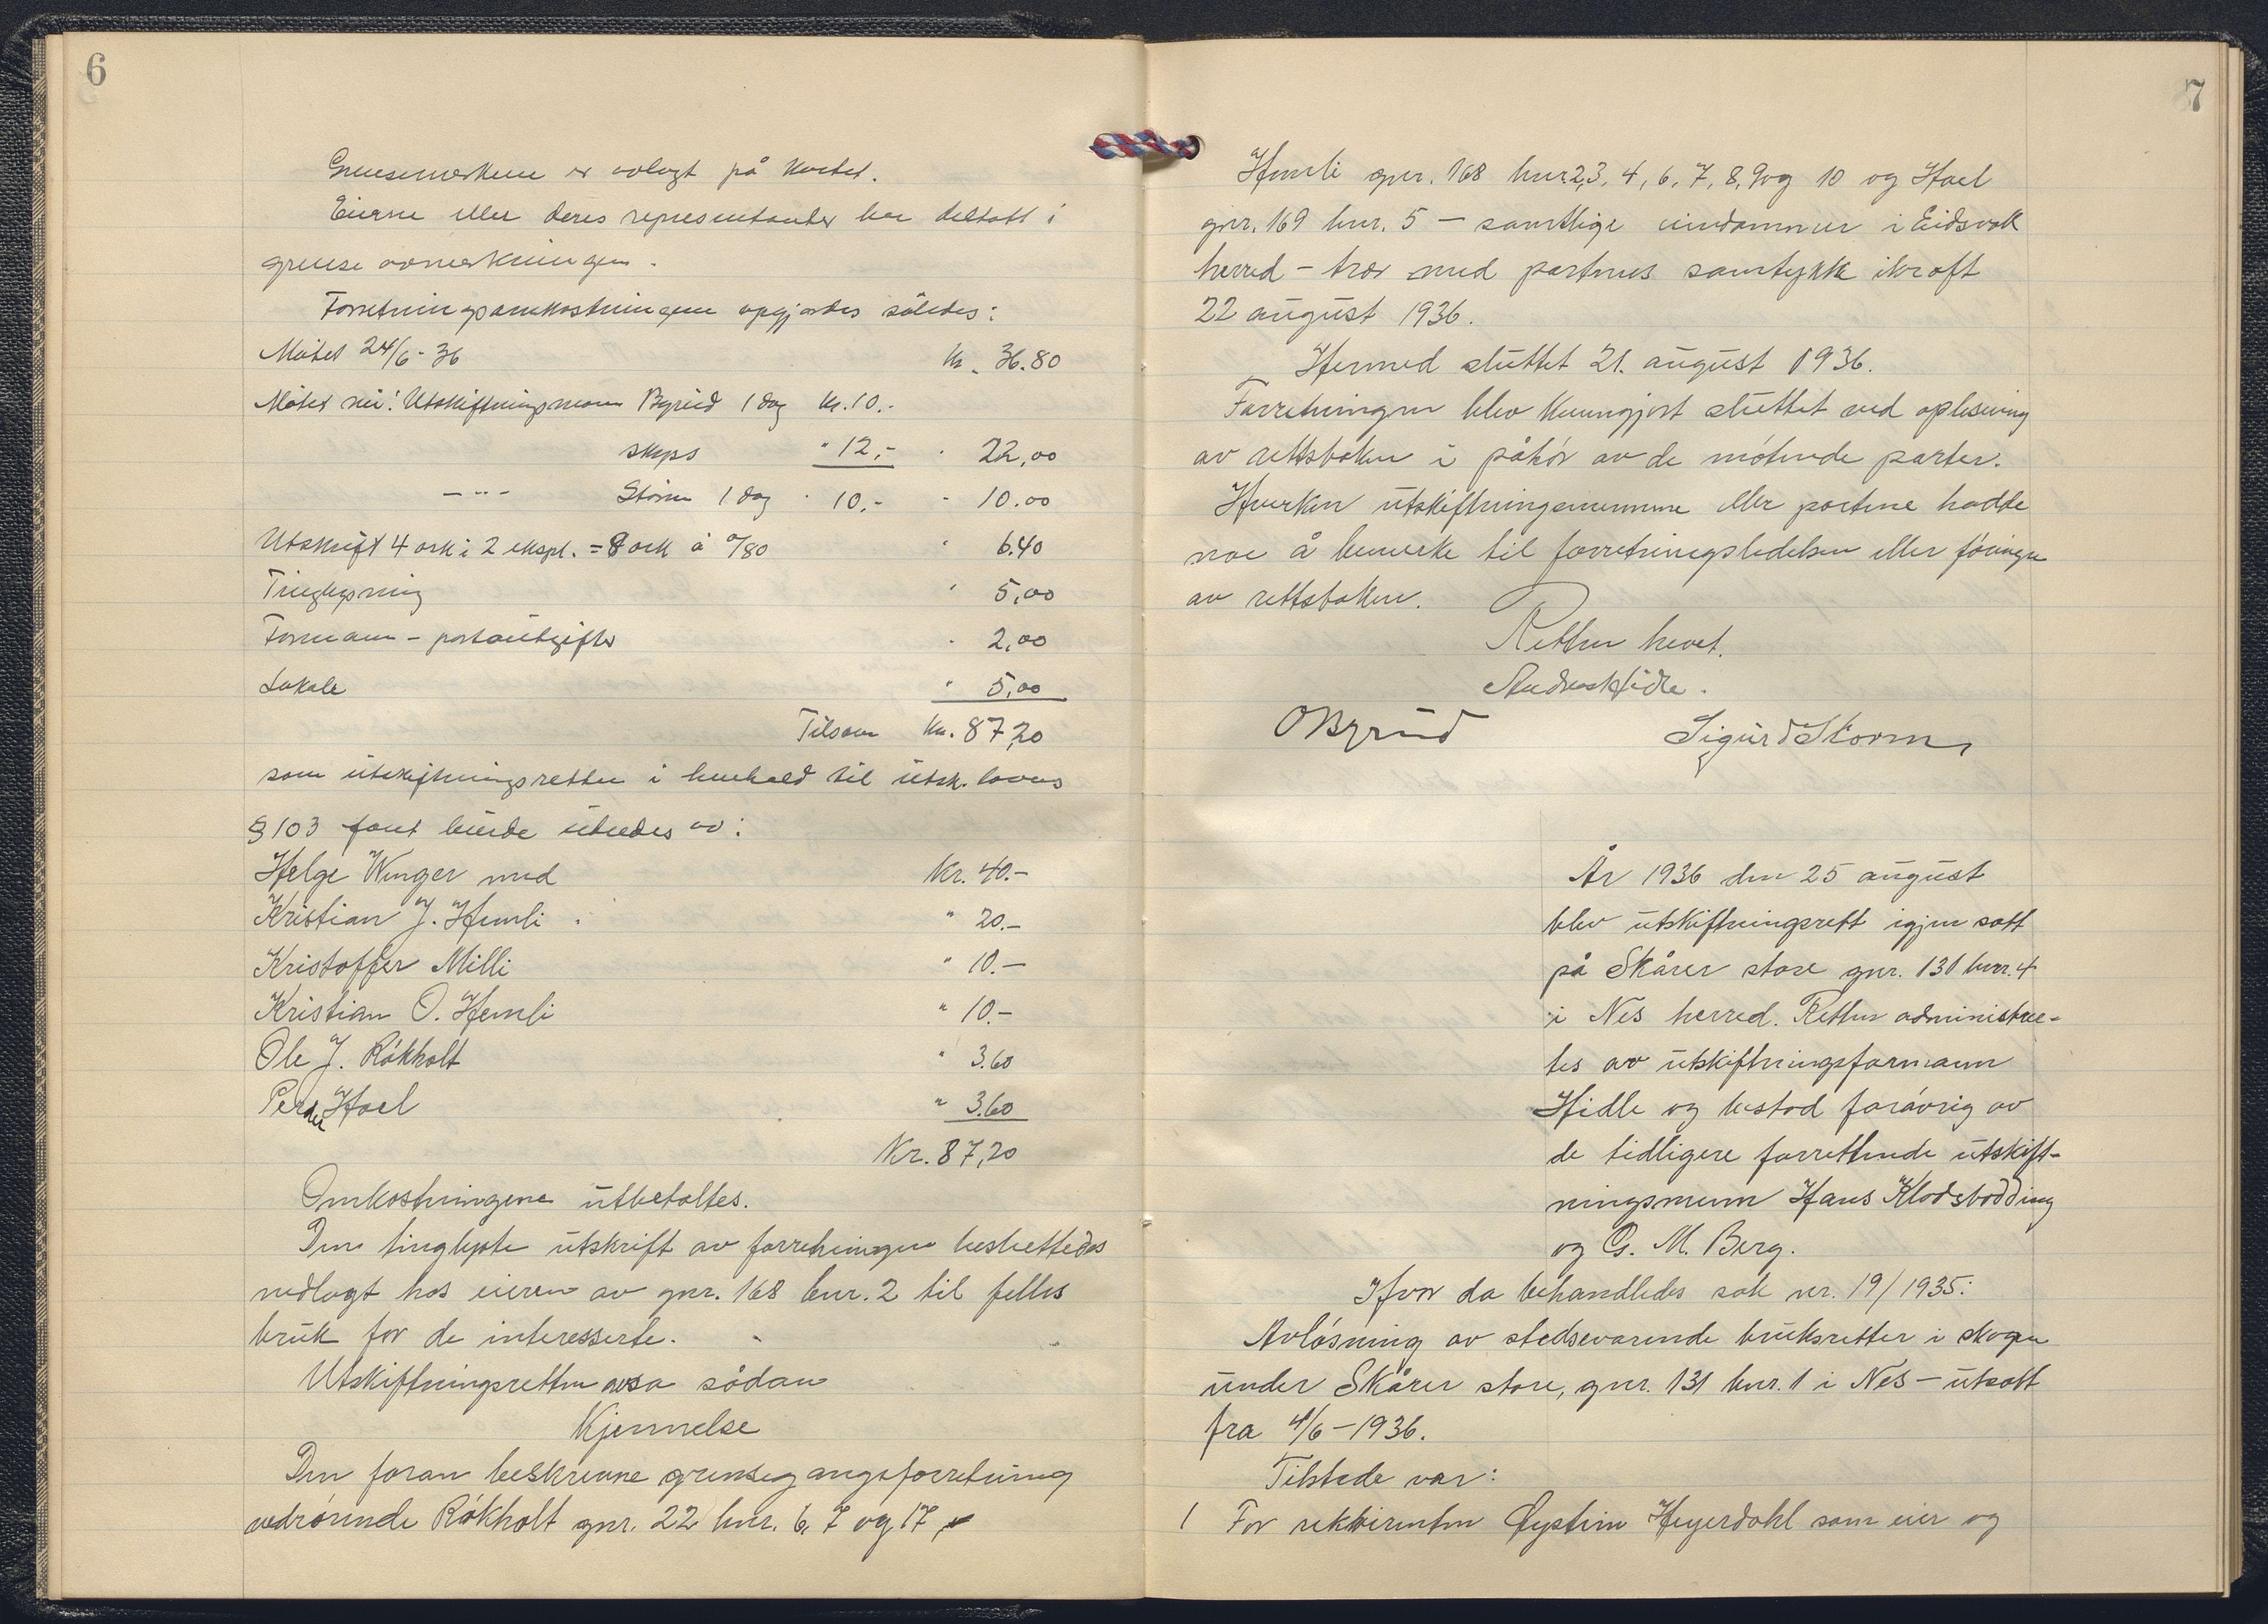 6
Grensemerkene er avlagt på kartet.
Eierne eller deres representanter har deltatt i
grenseavmerkningen.
Forretningsomkostningene opgjordes således:
Møtet 24/6-36 Kr. 36.80
Møtet nu: Utskiftningsmann Byrud 1 dag kr. 10.-
skyss " 12,- " 22,00
— " — Storm 1 dag " 10.- " 10.00
Utskrift 4 ark i 2 ekspl. = 8 ark à 0/80 " 6.40
Tinglysning " 5,00
Formann - portoutgifter " 2,00
Lokale " 5,00
Tilsam Kr. 87,20
som utskiftningsretten i henhold til utsk. lovens
§ 103 fant burde utredes av:
Helge Winger med Kr. 40.-
Kristian J. Hemli " " 20.-
Kristoffer Milli " 10.-
Kristian O. Hemli " 10.-
Ole J. Råkholt " 3.60
Peder Hoel " 3.60
Kr. 87,20
Omkostningene utbetaltes.
Den tinglyste utskrift av forretningen besluttedes
nedlagt hos eieren av gnr. 168 bnr. 2 til felles
bruk for de interesserte.
Utskiftningsretten avsa sådan
Kjennelse
Den foran beskrevne grensegangsforretning
vedrørende Råkholt gnr. 22 bnr. 6, 7 og 17,
7
Hemli gnr. 168 bnr. 2, 3, 4, 6, 7, 8, 9 og 10 og Hoel
gnr. 169 bnr. 5 - samtlige eiendommer i Eidsvoll
herred - trær med partenes samtykke ikraft
22 august 1936.
Hermed sluttet 21. august 1936.
Forretningen blev kunngjort sluttet ved oplesning
av rettsboken i påhør av de møtende parter.
Hverken utskiftningsmennene eller partene hadde
noe å bemerke til forretningsledelsen eller føringen
av rettsboken.
Retten hevet.
Andreas Hidle.
O Byrud Sigurd Storm
År 1936 den 25 august
blev utskiftningsrett igjen satt
på Skårer store gnr. 131 bnr. 4
i Nes herred. Retten administrer-
tes av utskiftningsformann
Hidle og bestod forøvrig av
de tidligere forrettende utskift-
ningsmenn Hans Klodsbødding
og G. M. Berg.
Hvor da behandledes sak nr. 19/1935:
Avløsning av stedsevarende bruksretter i skogen
under Skårer store, gnr. 131 bnr. 1 i Nes - utsatt
fra 4/6-1936.
Tilstede var:
1 For rekvirenten Øystein Heyerdahl som eier og